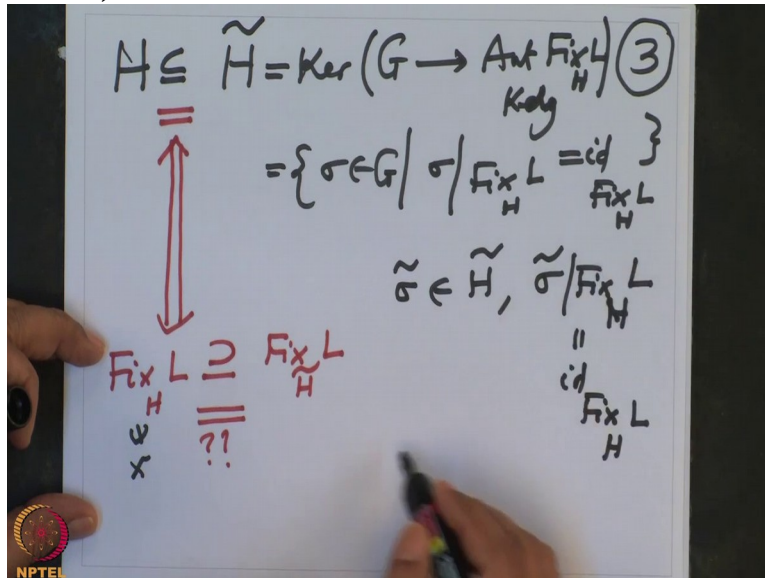 H ⊆ H̃ = Ker (G ⟶ Aut Fix_H L) ③
K-alg
= {σ ∈ G | σ|Fix_H L = id_Fix_H L}
σ̃ ∈ H̃, σ̃|Fix_H L
=
id_Fix_H L
Fix_H L ⊇ Fix_H̃ L
= ??
x
NPTEL